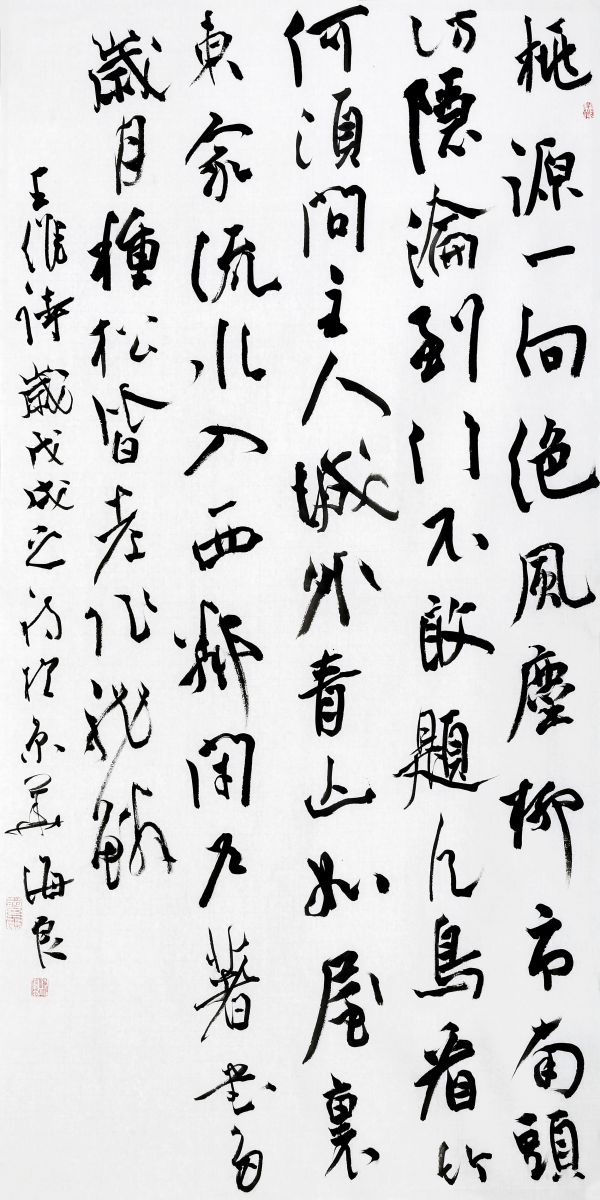 桃源一向絕風塵柳市南頭
訪隱淪到門不敢題凡鳥看竹
何須問主人城外青山如屋裏
東家流水入西鄰閉戶著書多
歲月種松皆老作龍鱗
王維詩歲戊戌之於京華海良